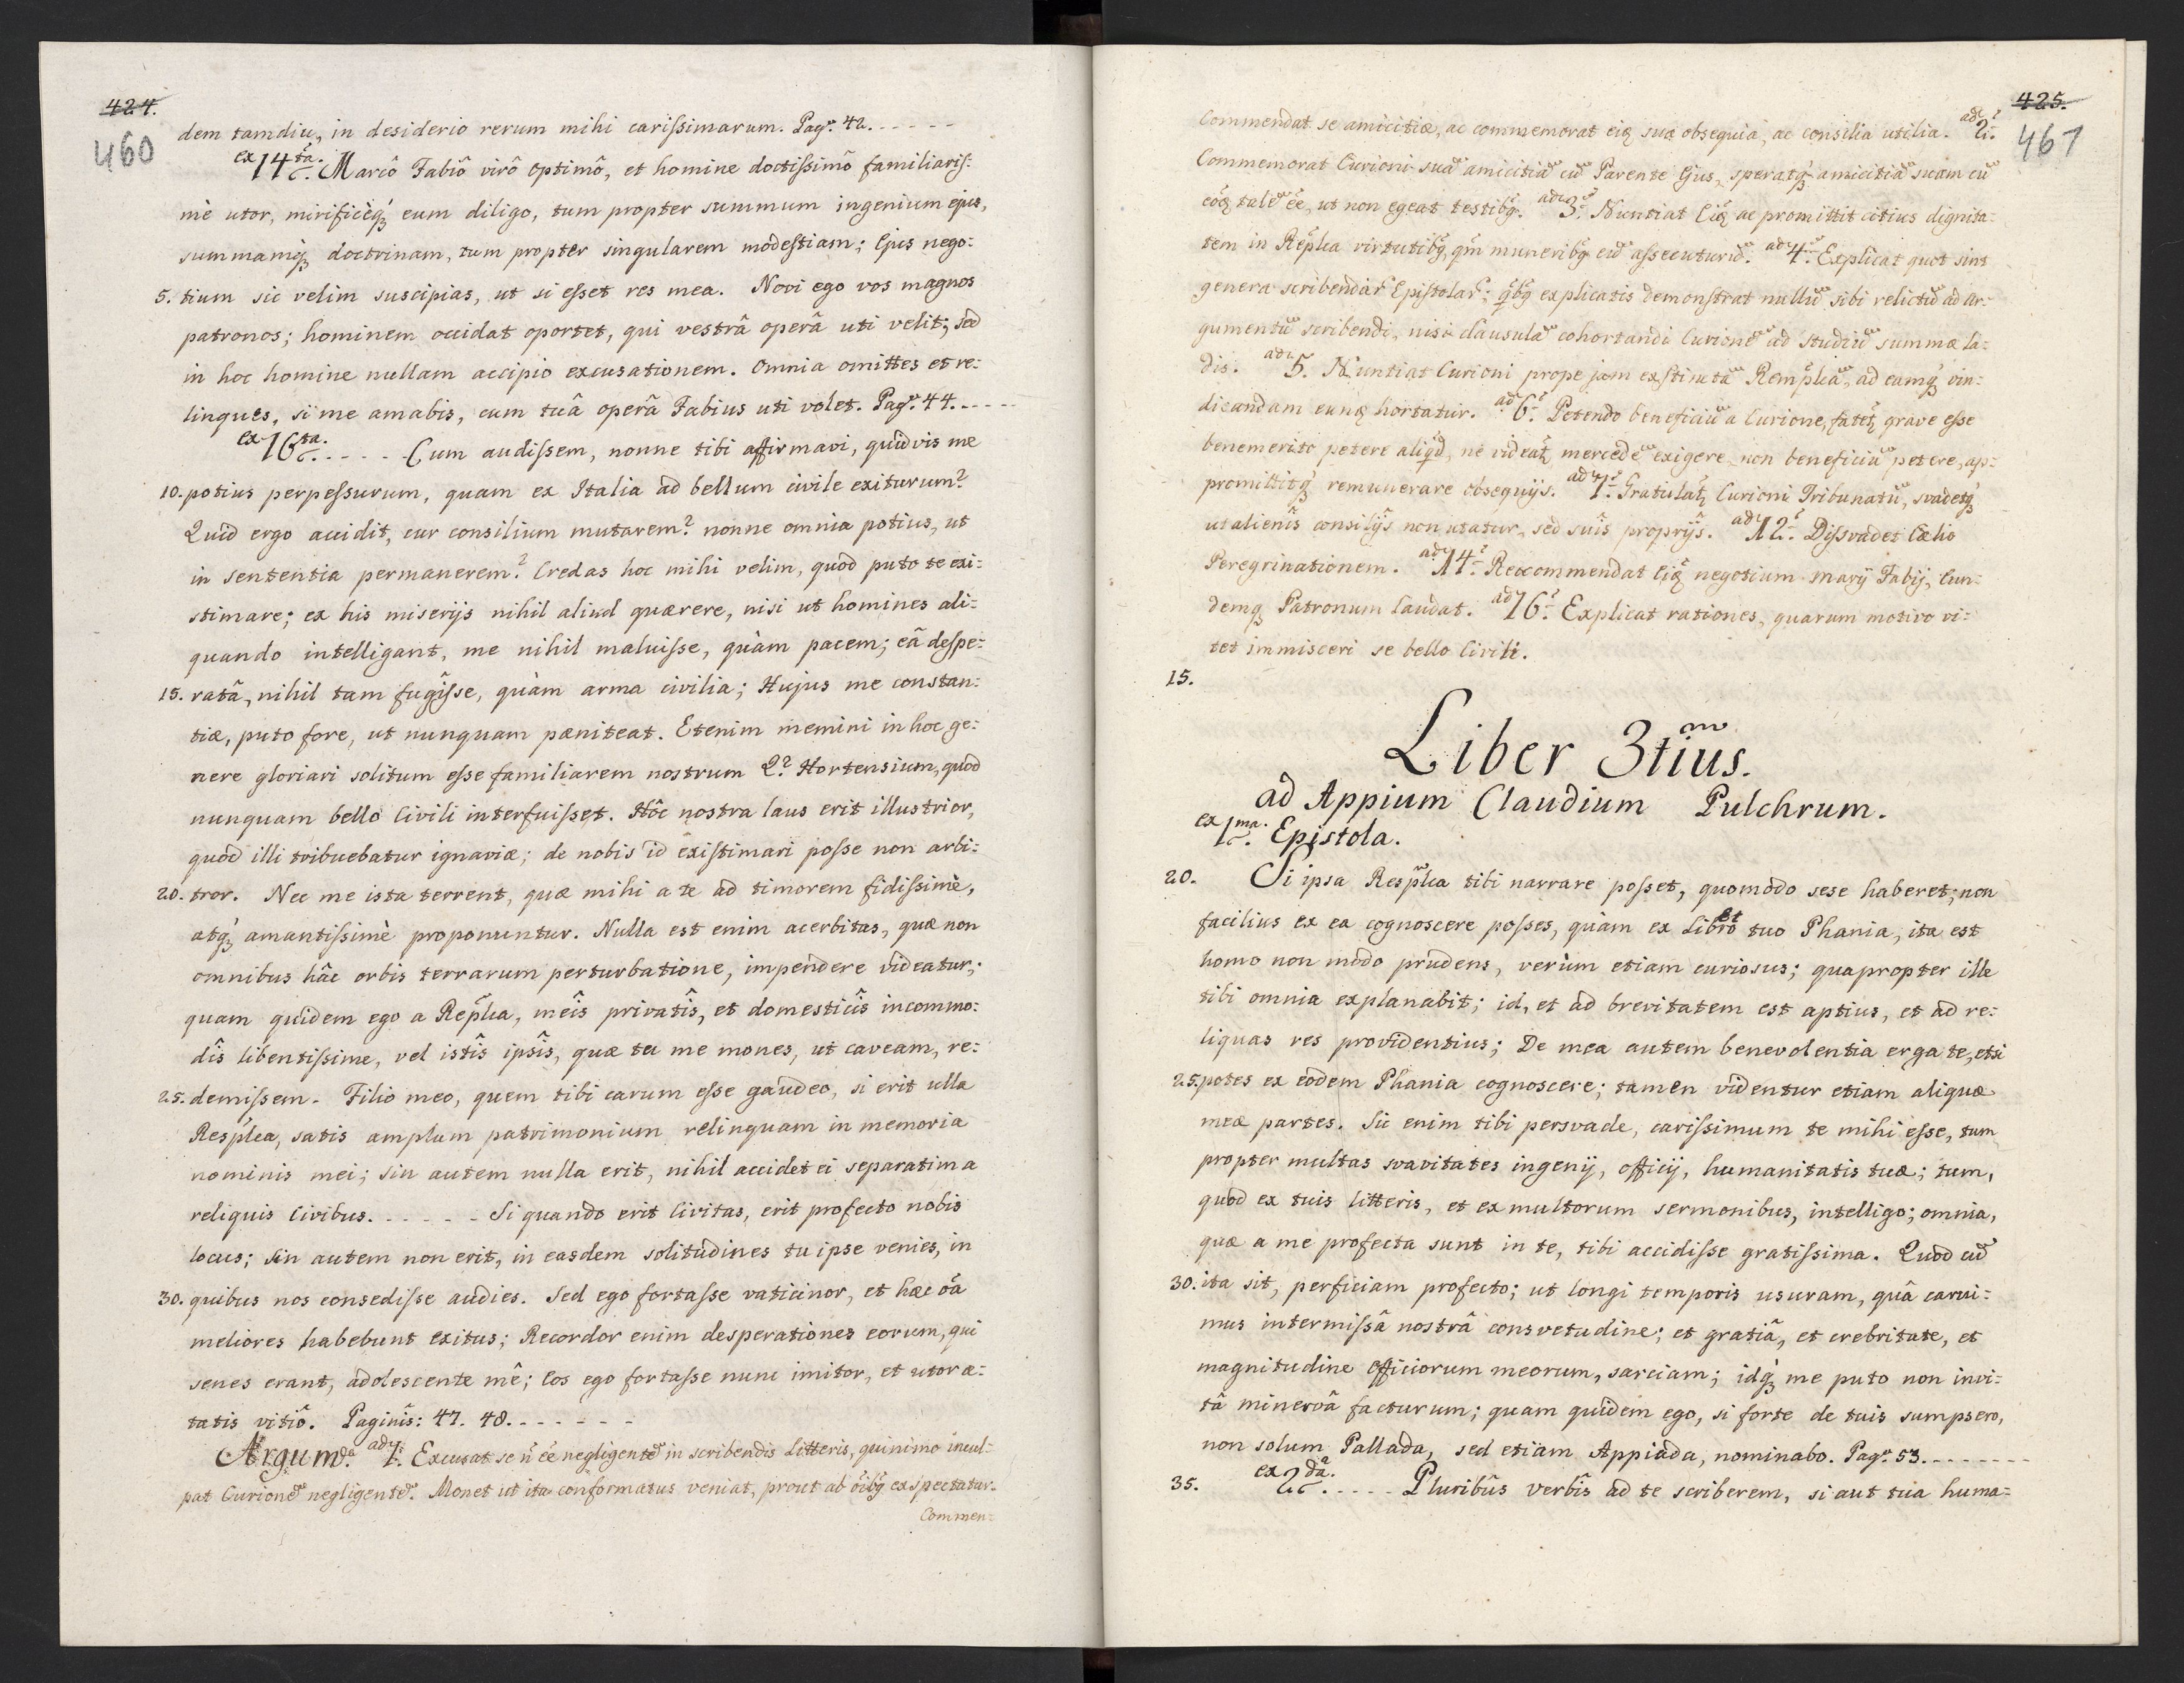 424.
460
dem tamdiu, in desiderio rerum mihi carissimarum. Pag. 42. - - - - -
ex 14ta. Marcô Fabiô virô optimô, et homine doctissimô familiaris:
mè utor, mirificèq́ꝫ eum diligo, tum propter summum ingenium ejus,
summamq́ꝫ doctrinam, tum propter singularem modestiam; Ejus nego:
5. tium sic velim suscipias, ut si esset res mea. Novi ego vos magnos
patronos; hominem occidat oportet, qui vestrâ operâ uti velit; sed
in hoc homine nullam accipio excusationem. Omnia omittes et re:
linques, si me amabis, cum tuâ operâ Fabius uti volet. Pag. 44. - - - -
ex 16ta. - - - - - Cum audissem, nonne tibi affirmavi, quidvis me
10. potius perpessurum, quam ex Italia ad bellum civile exiturum?
Quid ergo accidit, cur consilium mutarem? nonne omnia potius, ut
in sententia permanerem? Credas hoc mihi velim, quod puto te exi:
stimare; ex his miserijs nihil aliud quærere, nisi ut homines ali:
quando intelligant, me nihil maluisse, quàm pacem; eâ despe:
15. ratâ, nihil tam fugisse, quàm arma civilia; Hujus me constan:
tiæ, puto fore, ut nunquam pæniteat. Etenim memini in hoc ge:
nere gloriari solitum esse familiarem nostrum Q. Hortensium, quod
nunquam bello Civili interfuisset. Hôc nostra laus erit illustrior,
quod illi tribuebatur ignaviæ; de nobis id existimari posse non arbi:
20. tror. Nec me ista terrent, quæ mihi a te ad timorem fidissimè,
atq́ꝫ amantissimè proponuntur. Nulla est enim acerbitas, quæ non
omnibus hâc orbis terrarum perturbatione, impendere videatur;
quam quidem ego a Rep̃lca, meîs privatîs, et domesticîs incommo:
dîs libentissime, vel istîs ipsîs, quæ tu me mones, ut caveam, re:
25. demissem. Filio meo, quem tibi carum esse gaudeo, si erit ulla
Resp̃lca, satis amplum patrimonium relinquam in memoria
nominis mei; sin autem nulla erit, nihil accidet ei separatim a
reliquis Civibus. - - - - - Si quando erit Civitas, erit profecto nobis
locus; sin autem non erit, in easdem solitudines tu ipse venies, in
30. quibus nos consedisse audies. Sed ego fortasse vaticinor, et hæc õa
meliores habebunt exitus; Recordor enim desperationes eorum, qui
senes erant, adolescente mê; Eos ego fortasse nunc imitor, et utor æ:
tatis vitiô. Paginîs: 47. 48. - - - - - -
Argum. ad 1. Excusat se ñ ẽe negligentẽ in scribendis Litteris, quinimo incul:
pat Curionẽ negligentẽ. Monet ut ita conformatus veniat, prout ab õibꝫ exspectatur.
Commen:
425.
467
Commendat se amicitiæ, ac commemorat eiq sua obsequia, ac consilia utilia. ad 2.
Commemorat Curioni suã amicitiã cũ Parente Ejus, speratq́ꝫ amicitiã suam cũ
eõq talẽ ẽe, ut non egeat testibꝫ. ad 3. Nuntiat Eiq ac promittit citius dignita:
tem in Rep̃lca virtutibꝫ, qm̃ muneribꝫ eũ assecuturũ. ad 4. Explicat quot sint
genera scribendar̃ Epistolar̃; q̃bꝫ explicatis demonstrat nullũ sibi relictũ ad ar:
gumentũ scribendi, nisi clausulã cohortandi Curionẽ ad studiũ summæ la:
dis. ad 5. Nuntiat Curioni prope jam exstinctã Remp̃lcã, ad eamq́ꝫ vin:
dicandam eunq hortatur. ad 6. Petendo beneficiũ a Curione, fatetꝫ grave esse
benemerito petere aliqd, ne videatꝫ mercedẽ exigere, non beneficiũ petere, ap:
promittitq́ꝫ remunerare obsequijs. ad 7. Gratulatꝫ Curioni Tribunatũ, svadetq́ꝫ
ut alienîs consilijs non utatur, sed suîs proprijs. ad 12. Dissvadet Cælio
Peregrinationem. ad 14. Recommendat Eiq negotium Marij Fabij, Eun:
demq Patronum laudat. ad 16. Explicat rationes, quarum motivo vi:
tet immisceri se bello Civili.
15.
Liber 3tius.
ad Appium Claudium Pulchrum.
ex 1ma. Epistola.
20. Si ipsa Resp̃lca tibi narrare posset, quomodo sese haberet; non
facilius ex ea cognoscere posses, quàm ex Liberto tuo Phania, ita est
homo non modo prudens, verùm etiam curiosus; quapropter ille
tibi omnia explanabit; id, et ad brevitatem est aptius, et ad re:
liquas res providentius; De mea autem benevolentia erga te, etsi
25. potes ex eodem Phania cognoscere; tamen videntur etiam aliquæ
meæ partes. Sic enim tibi persvade, carissimum te mihi esse, tum
propter multas svavitates ingenij, officij, humanitatis tuæ; tum,
quod ex tuis litteris, et ex multorum sermonibus, intelligo; omnia,
quæ a me profecta sunt in te, tibi accidisse gratissima. Quod cũ
30. ita sit, perficiam profecto; ut longi temporis usuram, quâ carui:
mus intermissâ nostrâ consvetudine; et gratiâ, et crebritate, et
magnitudine officiorum meorum, sarciam; idq́ꝫ me puto non invi:
tâ minervâ facturum; quam quidem ego, si forte de tuis sumpsero,
non solum Pallada, sed etiam Appiada, nominabo. Pag. 53. - - - - - - -
35. ex 2da. - - - - - Pluribûs verbîs ad te scriberem, si aut tua huma: